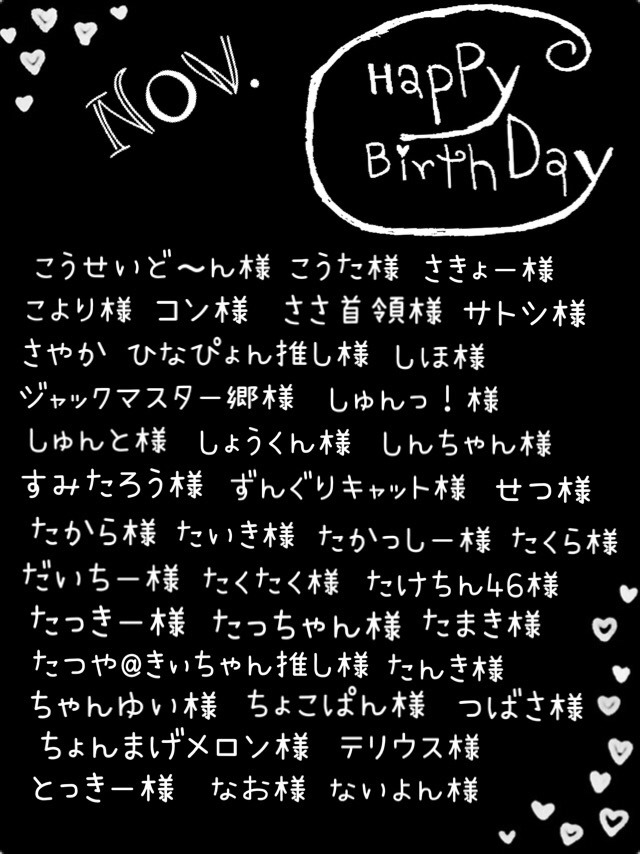 Nov.
Happy
BirthDay
こうせいど～ん様 こうた様 さきょー様
こより様 コン様 ささ首領様 サトシ様
さやか ひなぴょん推し様 しほ様
ジャックマスター郷様 しゅんっ！様
しゅんと様 しょうくん様 しんちゃん様
すみたろう様 ずんぐりキャット様 せつ様
たから様 たいき様 たかっしー様 たくら様
だいちー様 たくたく様 たけちん46様
たっきー様 たっちゃん様 たまき様
たつや@きぃちゃん推し様 たんき様
ちゃんゆい様 ちょこぱん様 つばさ様
ちょんまげメロン様 テリウス様
とっきー様 なお様 ないよん様